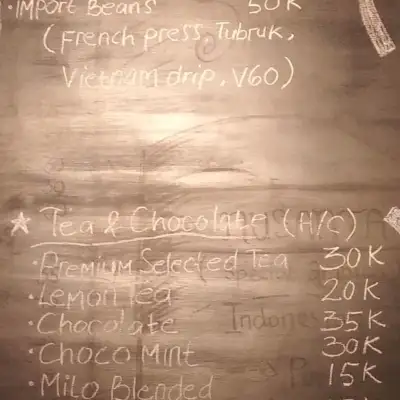 ·IMPORT Beans 50K
(French press, Tubruk,
Vietnam drip, V60)
☆ Tea & Chocolate (H/C)
·Premium Selected Tea 30K
·Lemon Tea 20K
·Chocolate 35K
·Choco Mint 30K
·Milo Blended 15K